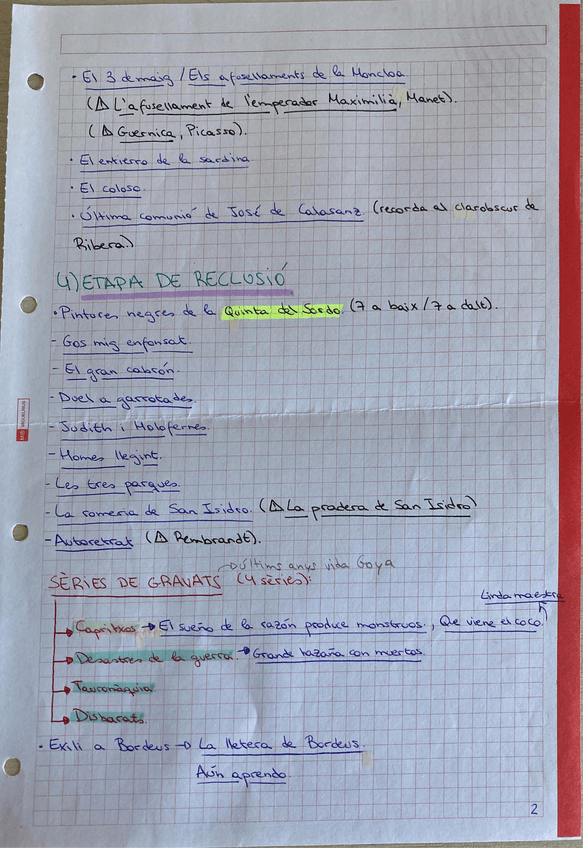 · El 3 de maig / Els afusellaments de la Moncloa
(⚠ L'afusellament de l'emperador Maximilià, Manet).
(⚠ Guernica, Picasso).
· El entierro de la sardina
· El coloso.
· Última comunió de José de Calasanz. (recorda al clarobscur de
Ribera.)
4) ETAPA DE RECLUSIÓ
· Pintures negres de la Quinta del Sordo. (7 a baix / 7 a dalt).
- Gos mig enfonsat.
- El gran cabrón.
- Duel a garrotades.
- Judith i Holofernes.
- Homes llegint.
- Les tres parques.
- La romeria de San Isidro. (⚠ La pradera de San Isidro)
- Autoretrat (⚠ Rembrandt).
→ últims anys vida Goya
SÈRIES DE GRAVATS (4 sèries):
Linda maestra
→ Capritxos → El sueño de la razón produce monstruos., Que viene el coco.
→ Desastres de la guerra. → Grande hazaña con muertos
→ Tauromàquia
→ Disbarats.
· Exili a Bordeus → La lletera de Bordeus.
Aún aprendo.
2